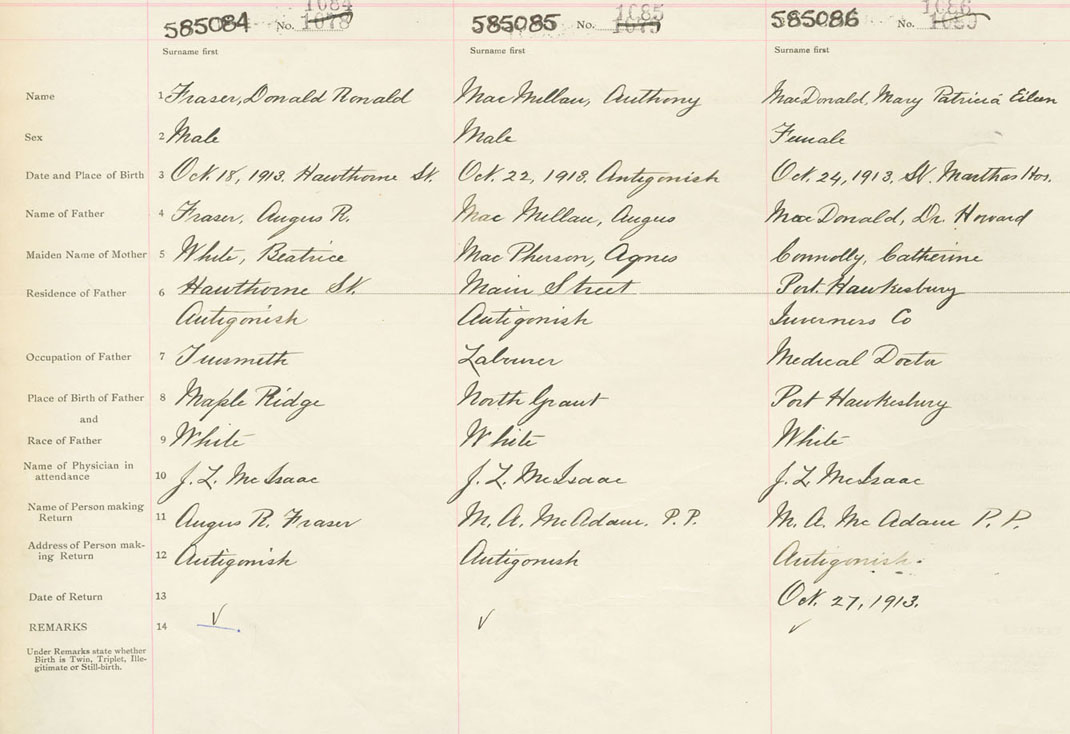 585084 No. 1084 1078 585085 No. 1085 1079 585086 No. 1086 1080
Surname first Surname first Surname first
Name 1 Fraser, Donald Ronald MacMillan, Anthony MacDonald, Mary Patricia Eileen
Sex 2 Male Male Female
Date and Place of Birth 3 Oct. 18, 1913. Hawthorne St. Oct. 22, 1913. Antigonish Oct. 24, 1913. St. Marthas Hos.
Name of Father 4 Fraser, Angus R. MacMillan, Angus MacDonald, Dr. Howard
Maiden Name of Mother 5 White, Beatrice MacPherson, Agnes Connolly, Catherine
Residence of Father 6 Hawthorne St. Main Street Port Hawkesbury
Antigonish Antigonish Inverness Co
Occupation of Father 7 Tinsmith Labourer Medical Doctor
Place of Birth of Father 8 Maple Ridge North Grant Port Hawkesbury
and
Race of Father 9 White White White
Name of Physician in
attendance 10 J. L. McIsaac J. L. McIsaac J. L. McIsaac
Name of Person making
Return 11 Angus R. Fraser M. A. McAdam. P. P. M. A. McAdam P. P.
Address of Person mak-
ing Return 12 Antigonish Antigonish Antigonish.
Date of Return 13 Oct. 27, 1913.
REMARKS 14 ✓ ✓ ✓
Under Remarks state whether
Birth is Twin, Triplet, Ille-
gitimate or Still-birth.